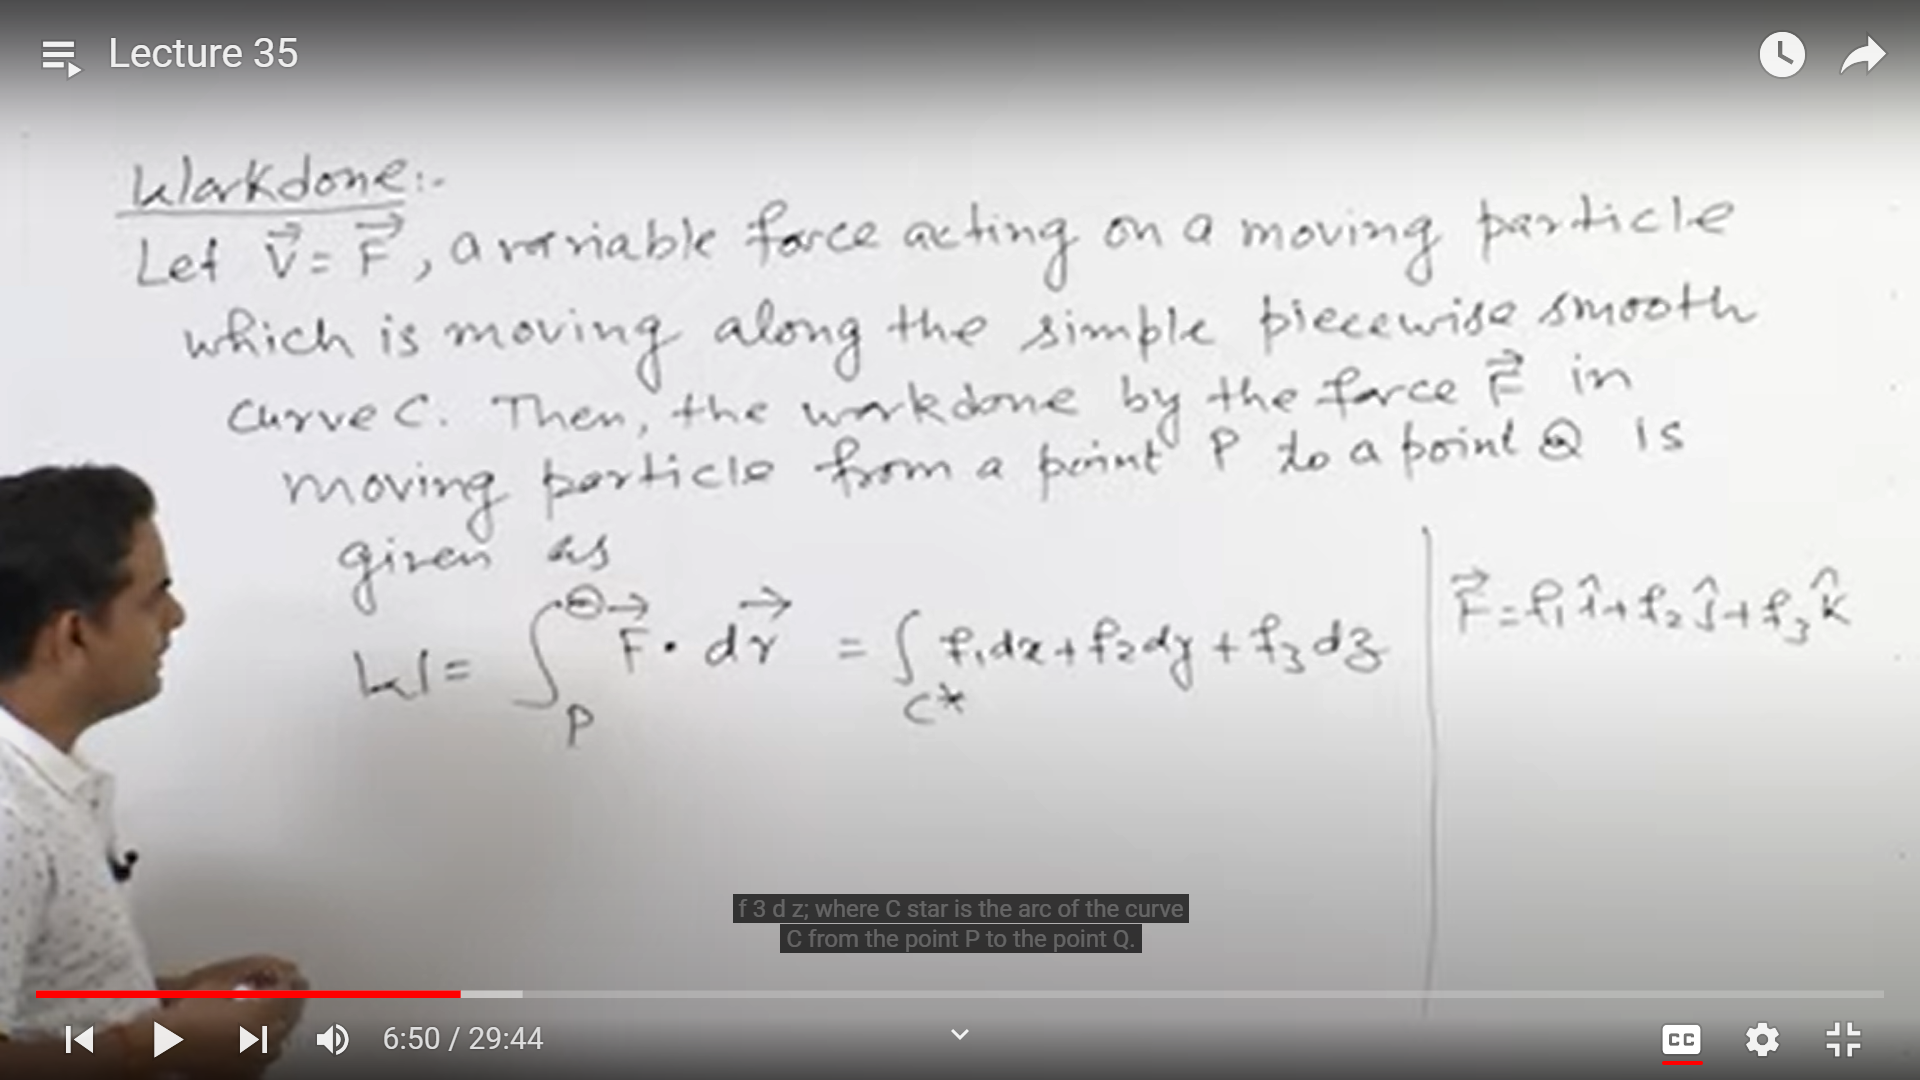 Lecture 35
Workdone:-
Let V⃗ = F⃗, a variable force acting on a moving particle
which is moving along the simple piecewise smooth
curve C. Then, the workdone by the force F⃗ in
moving particle from a point P to a point Q is
given as
W = ∫_P^Q F⃗ · dr⃗ = ∫_C* f₁dx + f₂dy + f₃dz
F⃗ = f₁î + f₂ĵ + f₃k̂
f 3 d z; where C star is the arc of the curve
C from the point P to the point Q.
6:50 / 29:44
CC